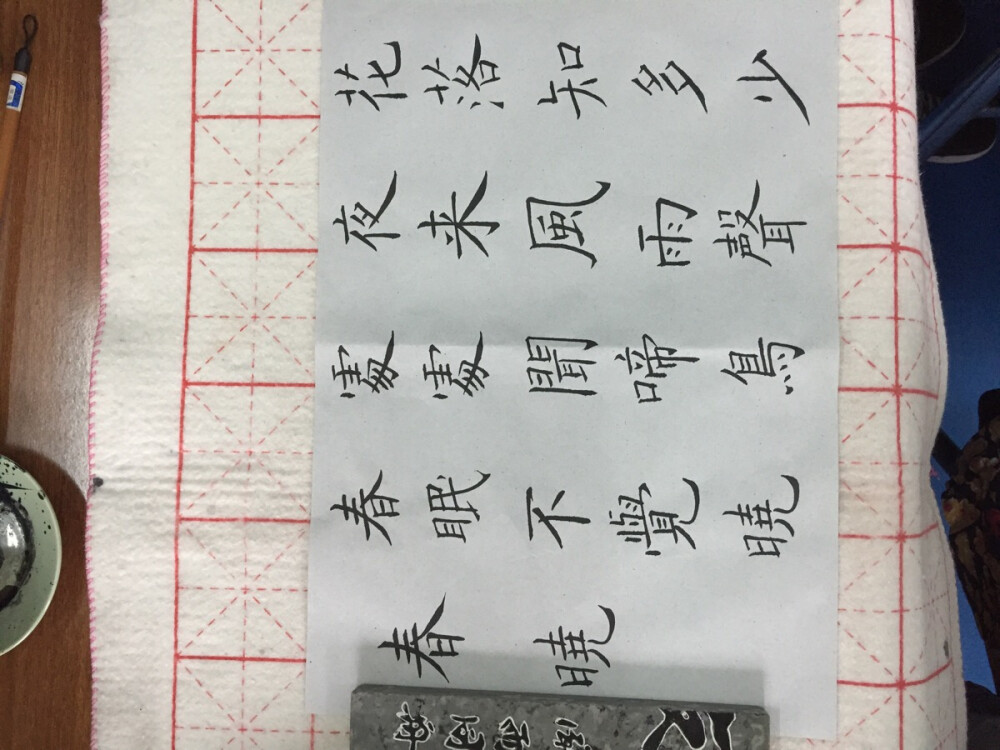 春曉
春眠不覺曉
處處聞啼鳥
夜来風雨聲
花落知多少